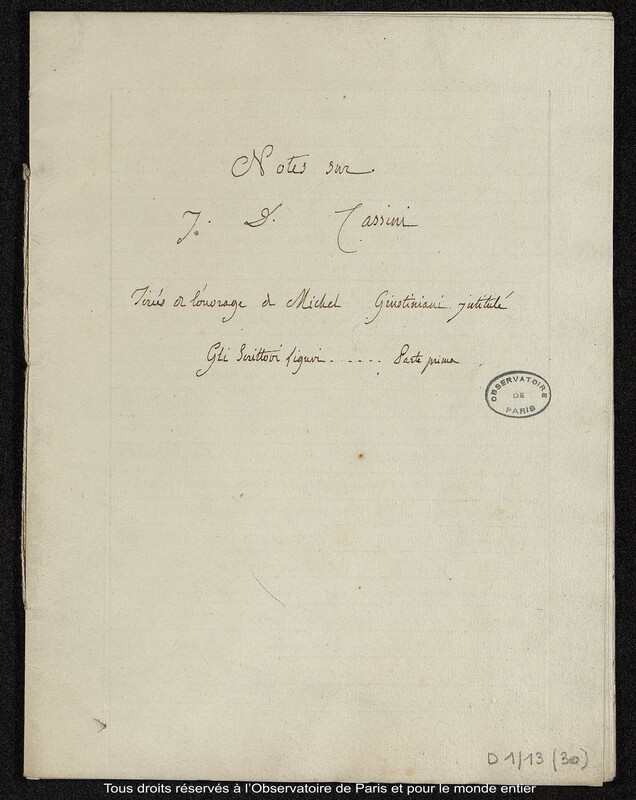 Notes sur
J. D. Cassini
Tirés de l'ouvrage de Michel Giustiniani intitulé
Gli Scrittori liguri ..... Parte prima
OBSERVATOIRE
DE
PARIS
D 1/13 (30)
Tous droits réservés à l'Observatoire de Paris et pour le monde entier